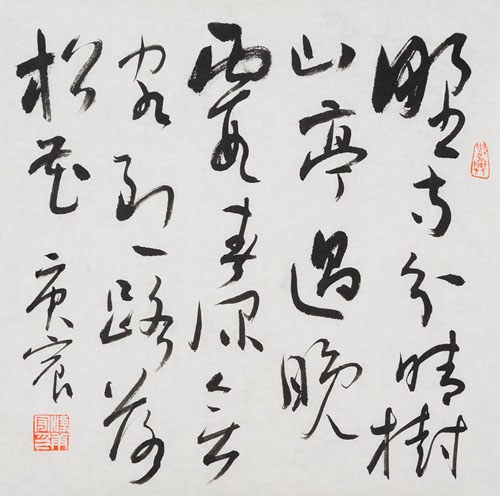 野寺分晴樹
山亭過晚
霞春深無
客到一路落
松花 庚宸